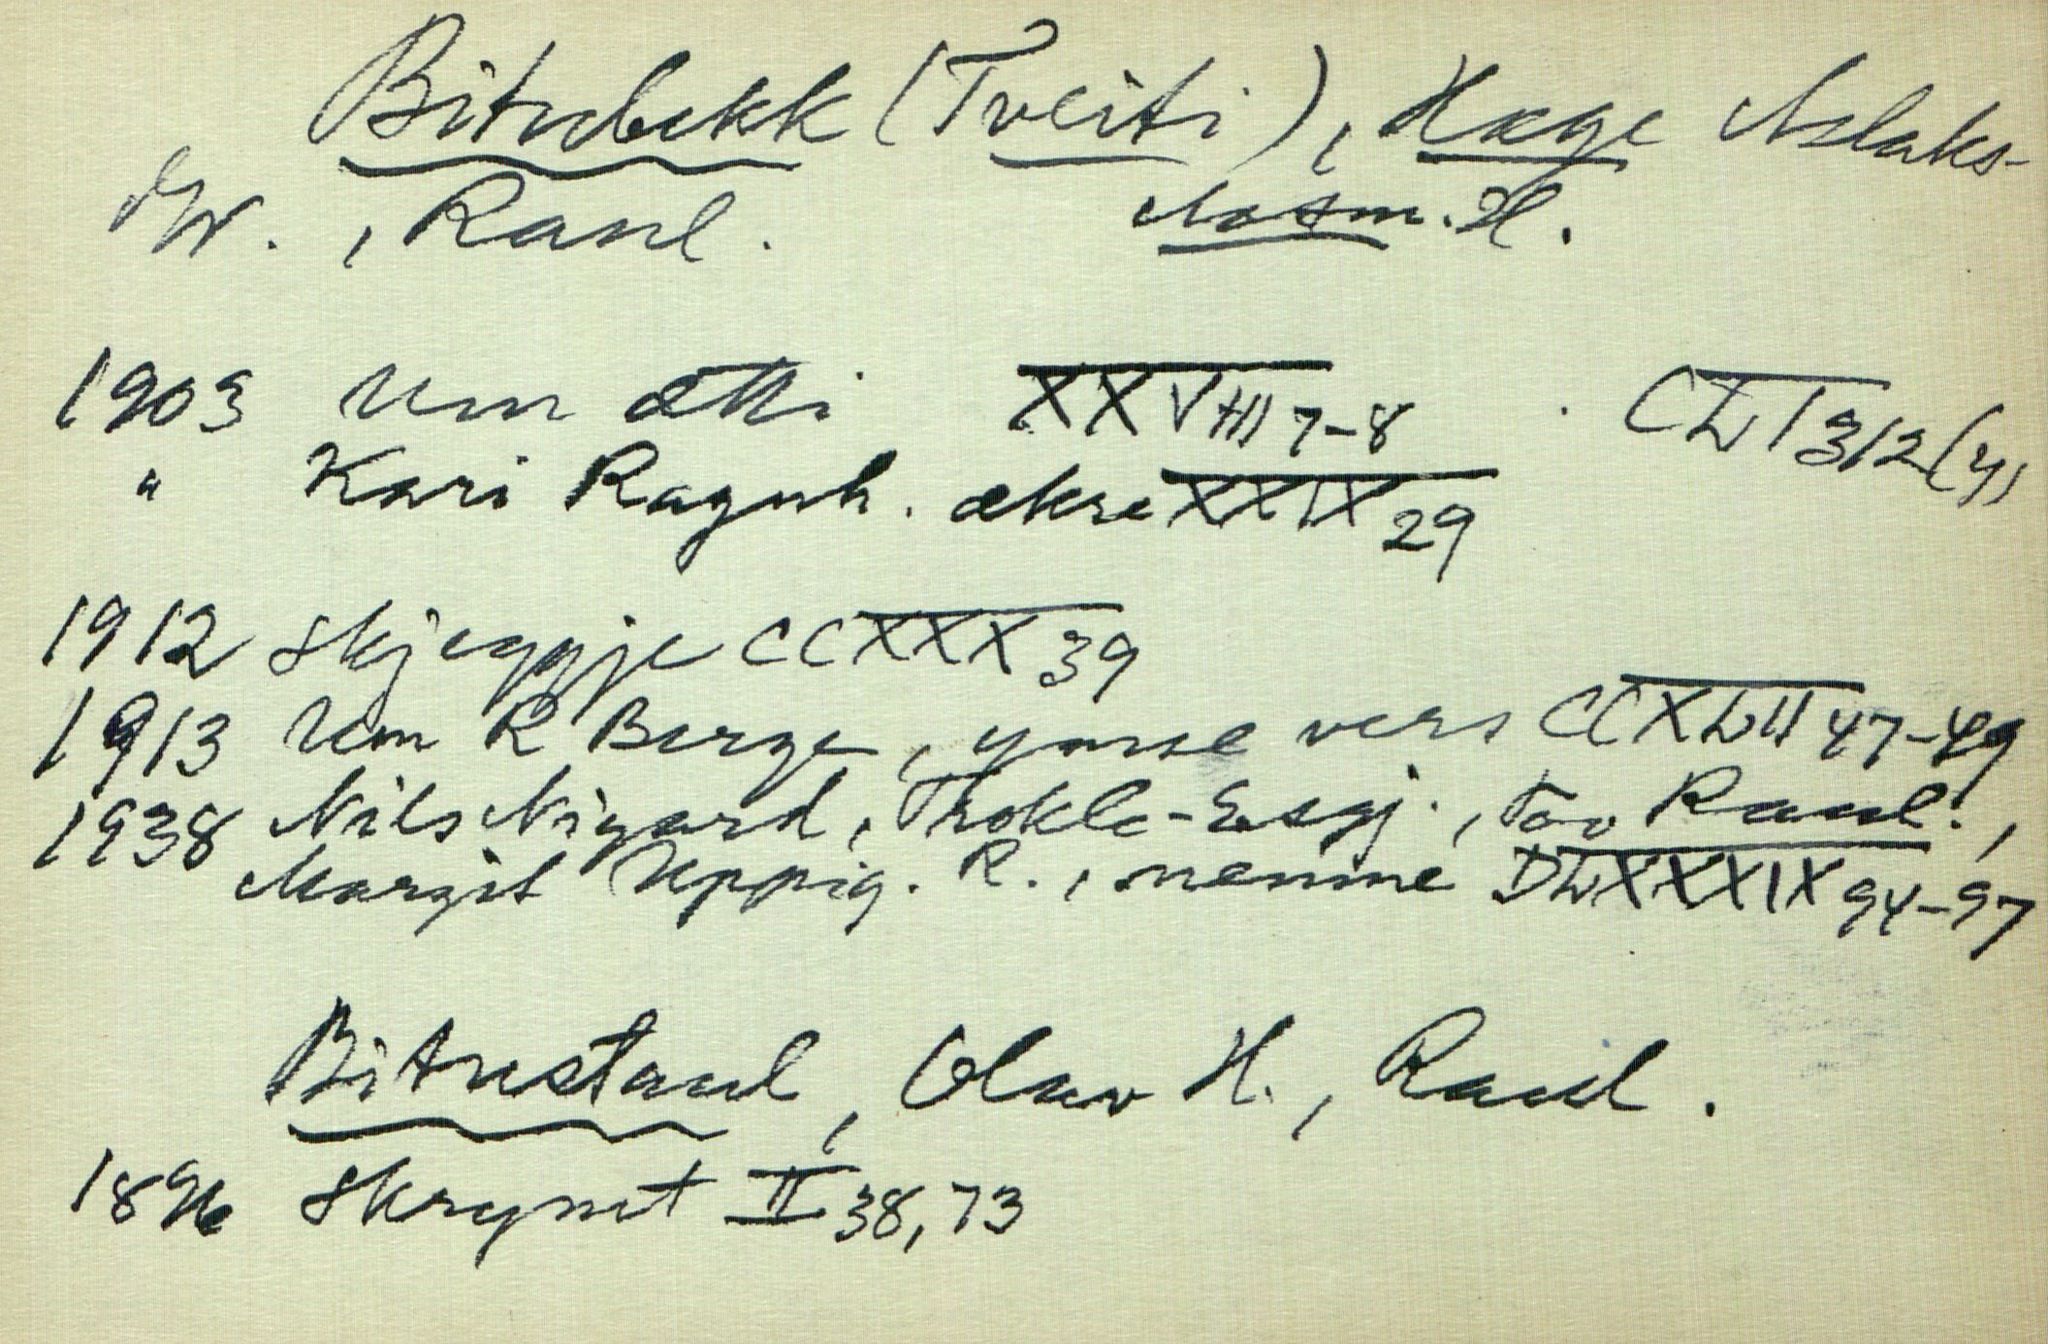 Bitubekk (Tveiti), Hæge Aslaks-
Raul. Notm. H.
1903 Um ætti XXVIII 7-8 CLI 312 (4)
" Kari Ragnh. ækre XXIX 29
1912 Skjeggje CCXXX 39
1913 Um R Berge, ymse vers CCXLII 47-49
1938 Nils Nigard, Trokle-Esgj., Tov Raul.,
Margit Uppig. R., nemne DLXXXIX 94-97
Bitustaul, Olav H., Raul.
1896 Skrymt II 38, 73